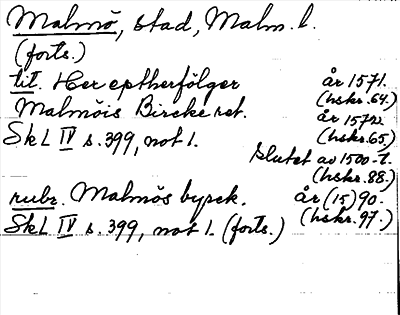 Malmö, stad, Malm. l.
(forts.)
tit. Her eptherfölger år 1571.
(hskr. 64.)
Malmöis Bircke ret. år 1572.
(hskr. 65)
SkL IV s. 399, not 1.
Slutet av 1500-t.
(hskr. 88.)
rubr. Malmös byrek. år (15)90.
(hskr. 97.)
SkL IV s. 399, not 1. (forts.)